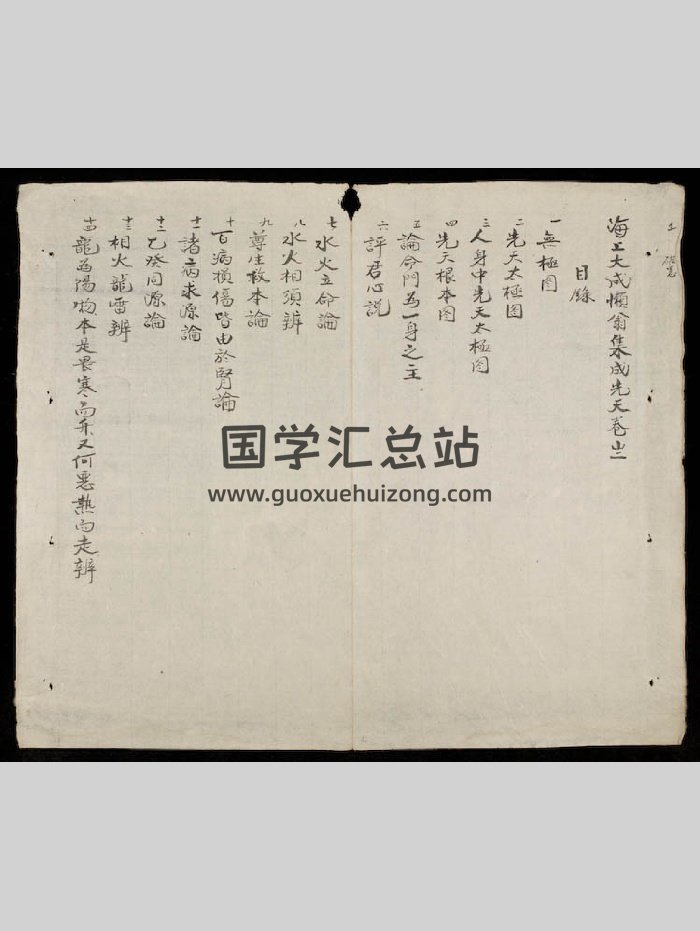 海上大成懶翁集成先天卷之二
目錄
一無極图
二先天太極图
三人身中先天太極图
四先天根本图
五論命門為一身之主
六評君心說
七水火立命論
八水火相須辨
九尊生救本論
十百病損傷皆由於腎論
十一諸病求源論
十二乙癸同源論
十三相火龍雷辨
十四龍為陽物本是畏寒而奔又何惡熱而走辨
国学汇总站
www.guoxuehuizong.com